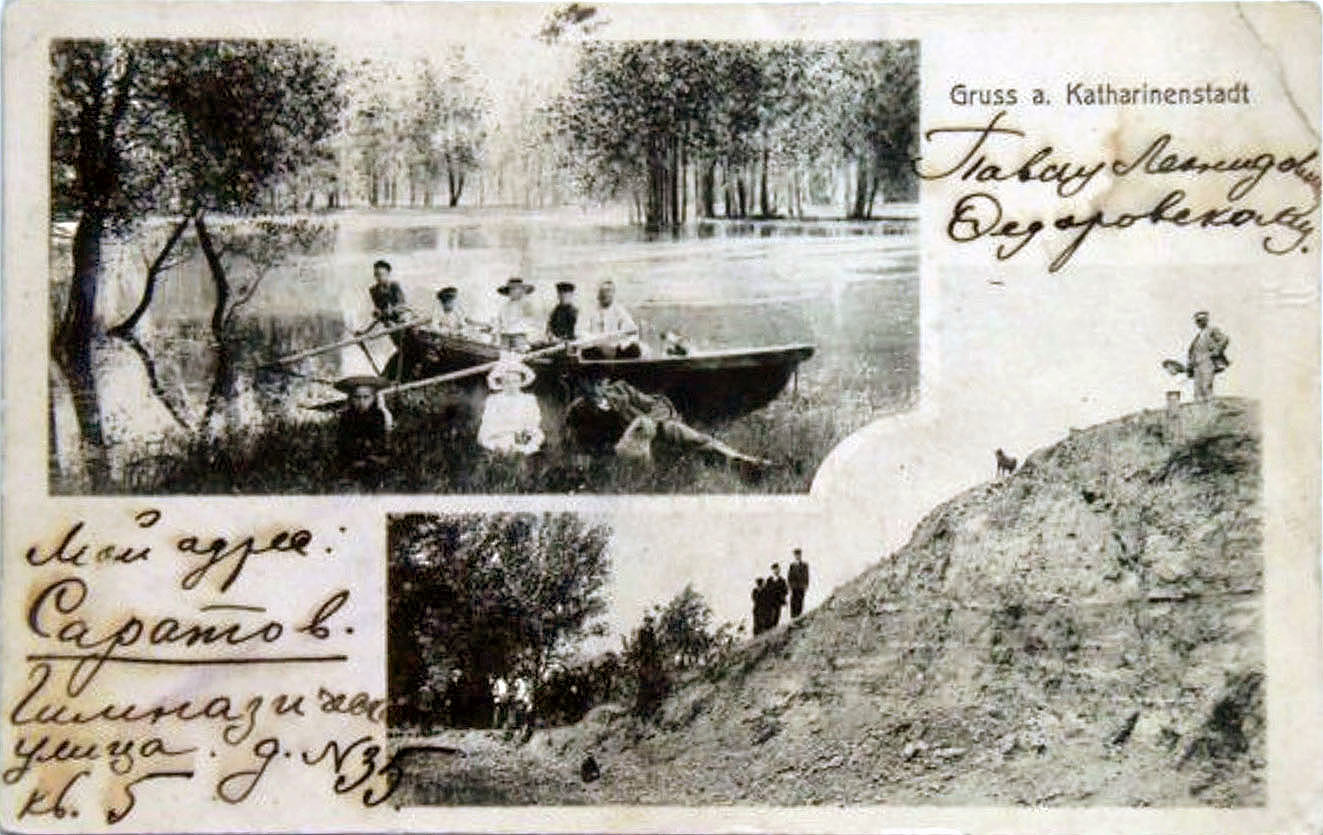 Gruss a. Katharinenstadt
Павлу Леонидов
Федоровскому.
Мой адрес:
Саратов.
Гимназичес
улица. д. N 35
кв. 5